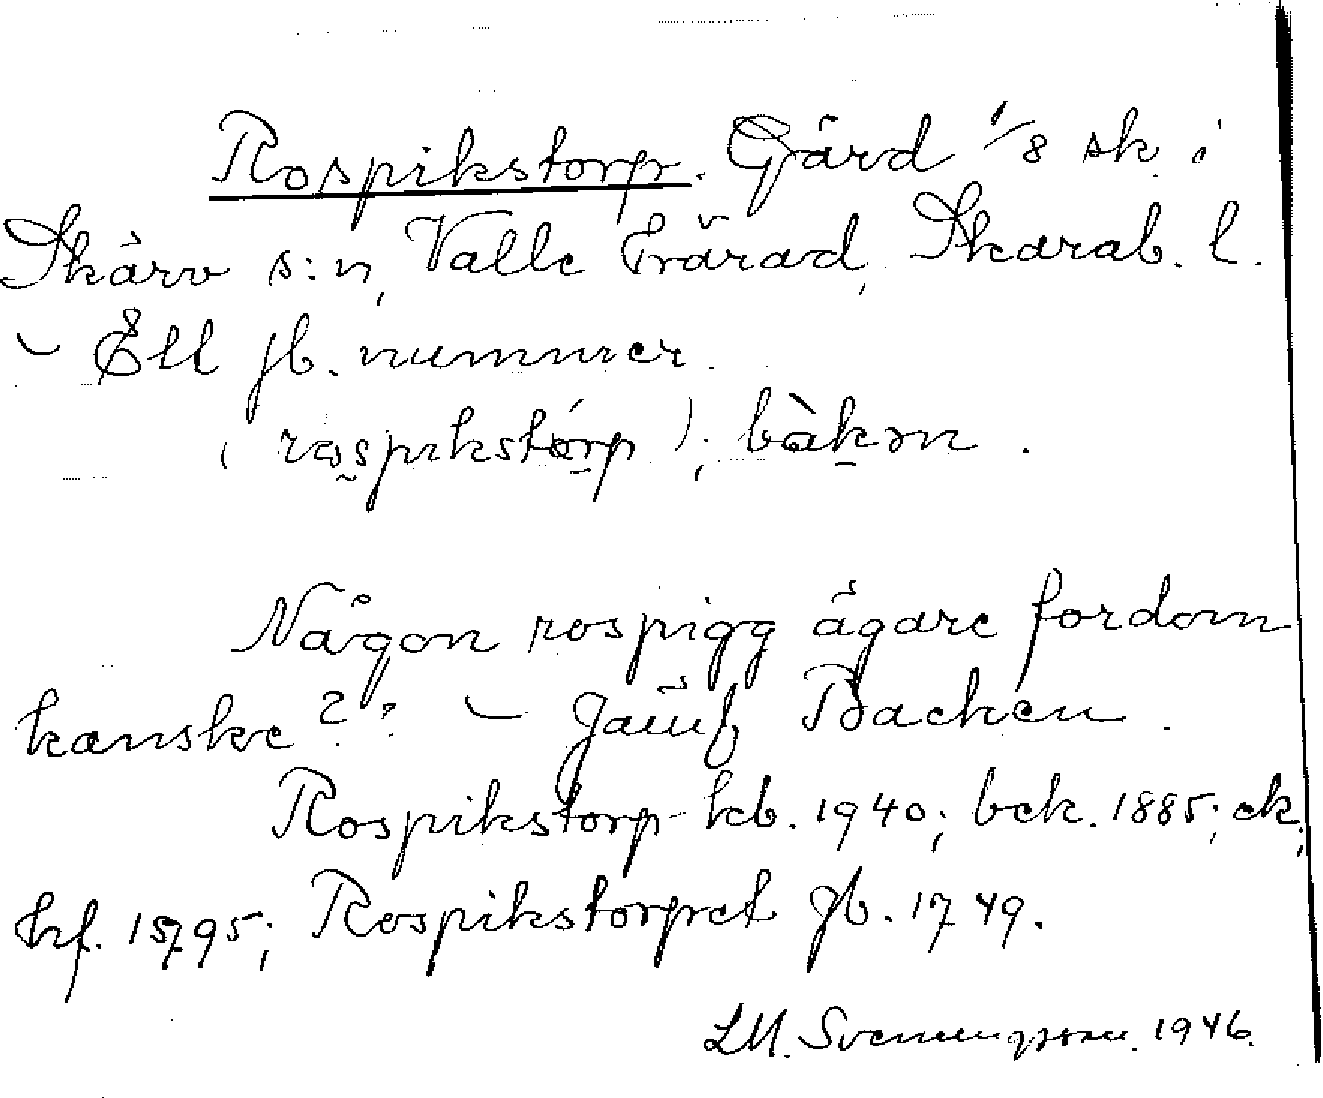 Rospikstorp. Gård 1/8 sk. i
Skärv s:n, Valle härad, Skarab. l.
– Ett jb. nummer.
(rospikstórp); bàkən.
Någon rospigg ägare fordom
kanske?? – Jämf. Backen.
Rospikstorp kb. 1940; bek. 1885; ek;
hf. 1795; Rospikstorpet jb. 1749.
LM. Svenungsson. 1946.